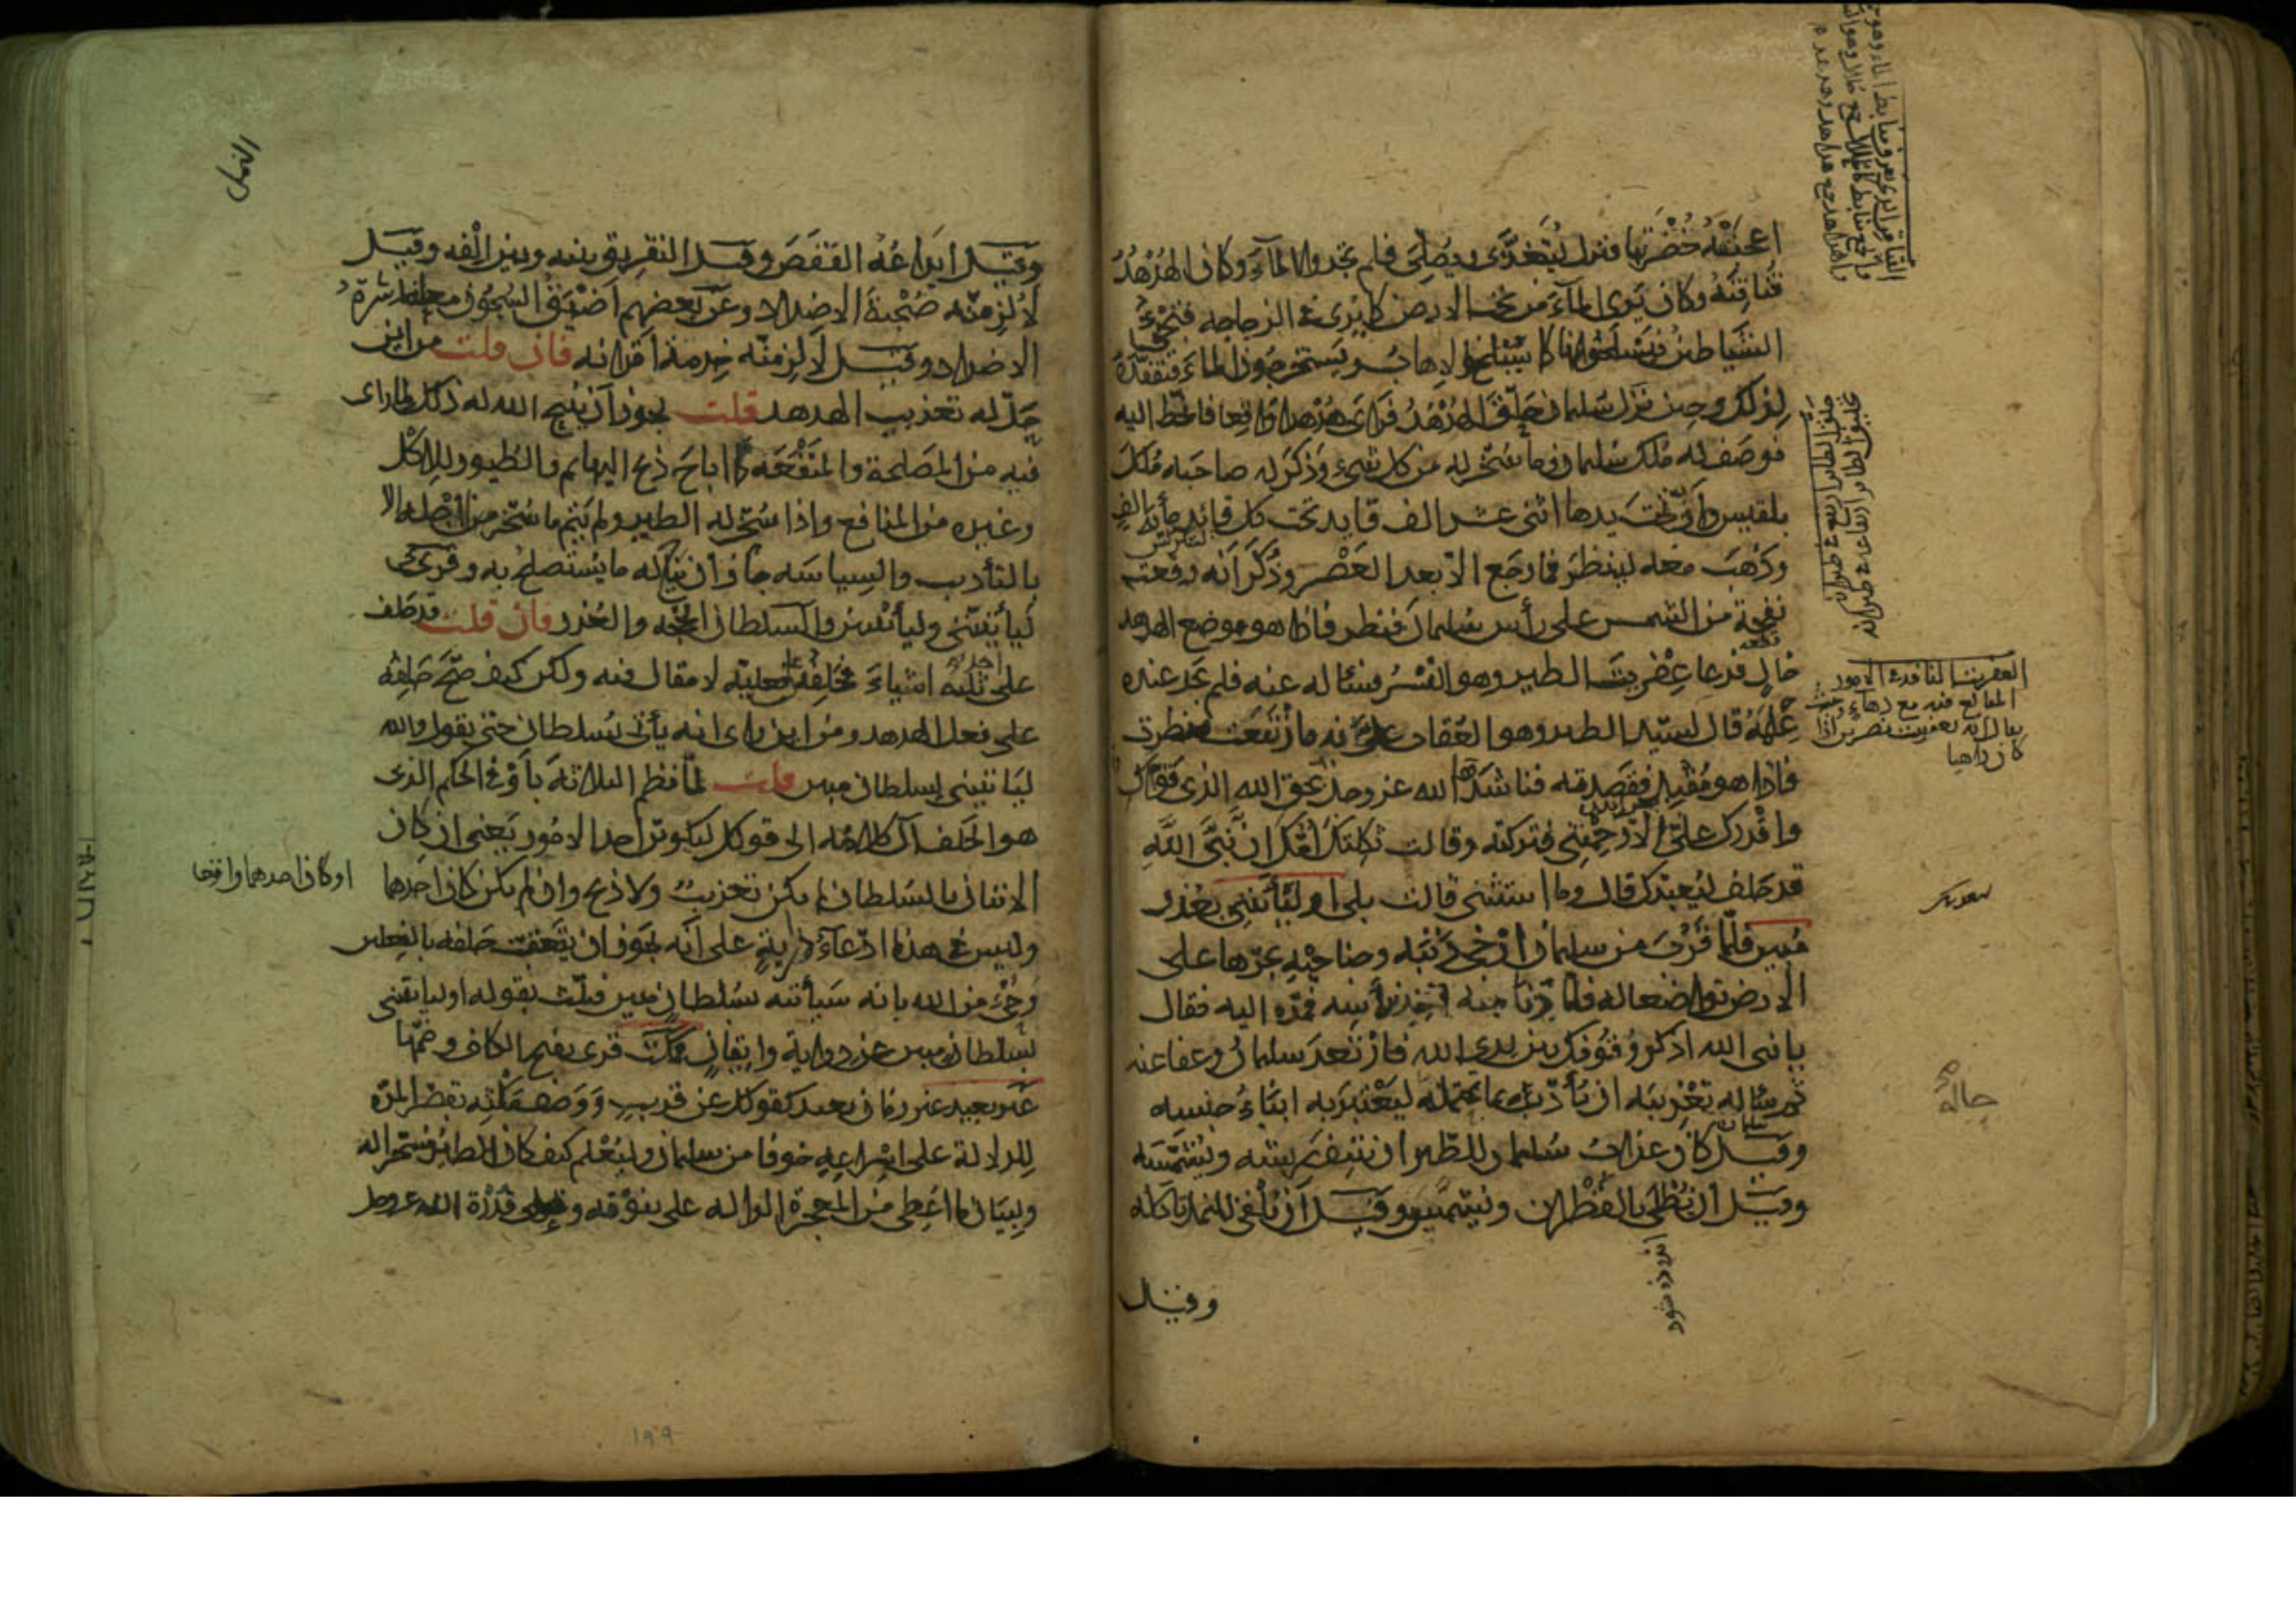 اعجبته خضرتها فنزل ليتغدى ويصلى فلم يجدوا الماء وكان الهدهد
قناقنه وكان يرى الماء من تحت الارض كما يرى فى الزجاجه فتجىء
الشياطين فيسلخونها كما يسلخ الاهاب ويستخرجون الماء فتفقده
لذلك وحين نزل سليمان حلق الهدهد فراى هدهدا واقعا فانحط اليه
فوصف له ملك سليمان وما سخر له من كل شىء وذكر له صاحبه ملك
بلقيس وان تحت يدها اثنى عشر الف قايد تحت كل قائد مأية الف
وذهب معه لينظر فما رجع الا بعد العصر وذكر انه وقعت
نفحة من الشمس على رأس سليمان فنظر فاذا هو موضع الهدهد
خال فدعا عفريت الطير وهو النسر فسئاله عنه فلم يجد عنده
علمه قال لسيد الطير وهو العقاب على به فارتفعت فنظرت
فاذا هو مقبل فقصدته فناشدها الله عز وجل بحق الله الذى قواك
واقدرك على الا رحمتنى فتركته وقالت ثكلتك امك ان نبى الله
قد حلف ليعذبنك قال وما استثنى قالت بلى او ليأتينى بعذر
مبين فلما قرب من سليمان ارخى ذنبه وجناحيه يجرها على
الارض تواضعا له فلما دنا منه اخذ برأسه فمده اليه فقال
يا نبى الله اذكر وقوفك بين يدى الله فارتعد سليمان وعفا عنه
ثم سئاله تعذيبه ان يأدب بما يحتمله ليعتبر به ابناء جنسه
وقيل كان عذاب سليمان للطير ان ينتف ريشه ويشمسه
وقيل ان يطلى بالقطران ويشمس وقيل ان يلقى للنمل تأكله
وقيل
العفريت النافذ فى الامور
المبالغ فيه مع دهاء وخبث
يقال انه لعفريت نفريت اذا
كان داهيا
النمل
وقيل ايداعه القفص وقيل التفريق بينه وبين الفه وقيل
لالزمنه صحبة الاضداد وعن بعضهم اضيق السجون معاشرة
الاضداد وقيل لالزمنه خدمة اقرانه فان قلت من اين
حل له تعذيب الهدهد قلت يجوز ان يبيح الله له ذلك لما راى
فيه من المصلحة والمنفعة كما اباح ذبح البهايم والطيور للاكل
وغيره من المنافع واذا سخر له الطير ولم يتم ما سخر من اجله الا
بالتأديب والسياسه جاز ان يباح له ما يستصلح به وقرىء
ليأتيننى وليأتينن والسلطان الحجه والعذر فان قلت قد حلف
على ثلثه اشياء فحلفه على فعليه لا مقال فيه ولكن كيف صح حلفه
على فعل الهدهد ومن اين درى انه يأتى بسلطان حتى يقول والله
ليأتينى بسلطان مبين قلت لما نظم الثلاثة بأو فى الحكم الذى
هو الحلف آل كلامه الى قولك ليكونن احد الامور يعنى ان كان
الاتيان بالسلطان لم يكن تعذيب ولا ذبح وان لم يكن كان احدهما
وليس فى هذا ادعاء دراية على انه يجوز ان يتعقب حلفه بالفعلين
وحى من الله بانه سيأتيه بسلطان مبين فثلث بقوله او ليأتينى
بسلطان مبين عن دراية وايقان فمكث قرىء بفتح الكاف وضمها
غير بعيد غير زمان بعيد كقولك عن قريب ووصف مكثه بقصر المدة
للدلالة على اسراعه خوفا من سليمان وليعلم كيف كان الطير مسخرا له
ولبيان ما اعطى من المعجزة الدالة على نبوته وعلى قدرة الله عز وجل
او كان احدهما واقعا
١٩٩